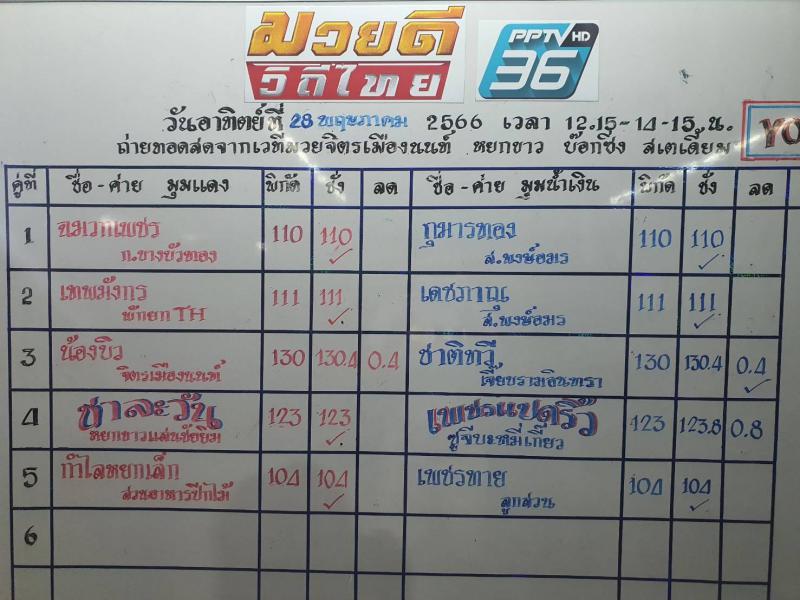 มวยดี
วิถีไทย
PPTV HD
36
วันอาทิตย์ที่ 28 พฤษภาคม 2566 เวลา 12.15-14-15 น.
ถ่ายทอดสดจากเวทีมวยจิตรเมืองนนท์ หยกขาว บ๊อกซิ่ง สเตเดี้ยม
YO
คู่ที่ ชื่อ-ค่าย มุมแดง พิกัด ชั่ง ลด ชื่อ-ค่าย มุมน้ำเงิน พิกัด ชั่ง ลด
1 ขมเวกเพชร 110 110 กุมารทอง 110 110
ก.บางบัวทอง ส.พงษ์อมร
2 เทพมังกร 111 111 เดชภาณุ 111 111
พักยก TH ส.พงษ์อมร
3 น้องบิว 130 130.4 0.4 ชาติทวี 130 130.4 0.4
จิตรเมืองนนท์ เจี๊ยบรามอินทรา
4 ชาละวัน 123 123 เพชรแปดริ้ว 123 123.8 0.8
หยกขาวแฟนช้อยิม ซูจีบะหมี่เกี๊ยว
5 กำไลหยกเล็ก 104 104 เพชรทาย 104 104
สวนอาหารปีกไม้ ลูกสวน
6